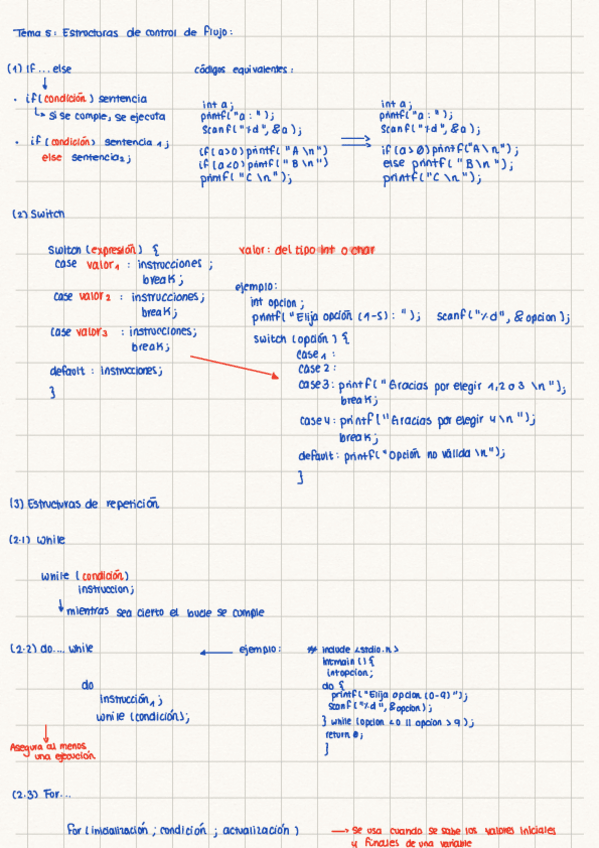 Tema 5: Estructuras de control de flujo:
(1) If ... else
códigos equivalentes:
· if(condición) sentencia
↳ Si se cumple, se ejecuta
· if (condición) sentencia 1;
else sentencia2;
int a;
printf("a: ");
scanf("%d", &a);
if(a>0)printf("A \n")
if(a<0)printf("B \n")
printf("C \n");
int a;
printf("a: ");
scanf("%d", &a);
if(a>0)printf("A\n");
else printf("B\n");
printf("C \n");
(2) Switch
Switch (expresión) {
case valor1 : instrucciones ;
break;
case valor2 : instrucciones;
break;
case valor3 : instrucciones;
break;
default : instrucciones;
}
valor: del tipo int o char
ejemplo:
int opcion;
printf("Elija opción (1-5): "); scanf("%d", &opcion);
switch (opción) {
case 1 :
case 2 :
case 3: printf("Gracias por elegir 1,2 o 3 \n");
break;
case 4: printf("Gracias por elegir 4 \n");
break;
default: printf("Opción no válida \n");
}
(3) Estructuras de repetición
(2.1) While
while (condición)
instruccion;
↓ mientras sea cierto el bucle se cumple
(2.2) do.... while
← ejemplo:
do
instrucción1;
while (condición);
Asegura al menos
una ejecución
# include <stdio.h>
int main () {
int opcion;
do {
printf("Elija opcion (0-9)");
scanf("%d", &opcion);
} while (opcion <0 || opcion >9);
return 0;
}
(2.3) For...
for (inicialización ; condición ; actualización)
→ Se usa cuando se sabe los valores iniciales
y finales de una variable